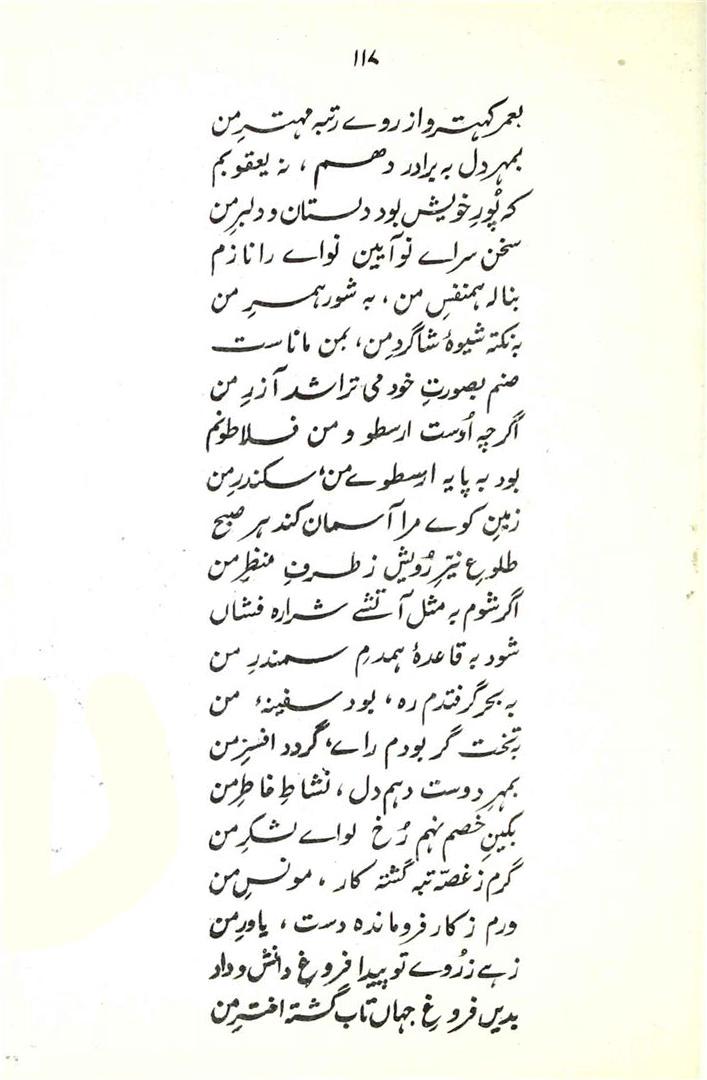 ۱۱۷
بعمر کہتر و از روے رتبہ مہترِ من
بمہر دل بہ برادر دہم ، نہ یعقوبم
کہ پُورِ خویش بود دلستان و دلبرِ من
سخن سراے نو آیین نواے را نازم
بنالہ ہمنفسِ من ، بہ شور ہمسرِ من
بہ نکتہ شیوۂ شاگردِ من، بمن ماناست
صنم بصورتِ خود می تراشد آزرِ من
اگرچہ اُوست ارسطو و من فلاطونم
بود بہ پایہ ارسطوے من، سکندرِ من
زمینِ کوے مرا آسمان کند ہر صبح
طلوعِ نیّرِ رُویش ز طرفِ منظرِ من
اگر شوم بہ مثل آتشے شرارہ فشاں
شود بہ قاعدۂ ہمدمِ سمندرِ من
بہ بحر گر فتدم رہ ، بود سفینۂ من
بہ تخت گر بودم راے، گردد افسرِ من
بمہرِ دوست دہم دل ، نشاطِ خاطرِ من
بکینِ خصم نہم رُخ لواے لشکرِ من
گرم ز غصّہ تبہ گشتہ کار ، مونسِ من
ورم ز کار فروماندہ دست ، یاورِ من
زہے ز رُوے تو پیدا فروغِ دانش و داد
بدیں فروغِ جہاں تاب گشتہ اخترِ من